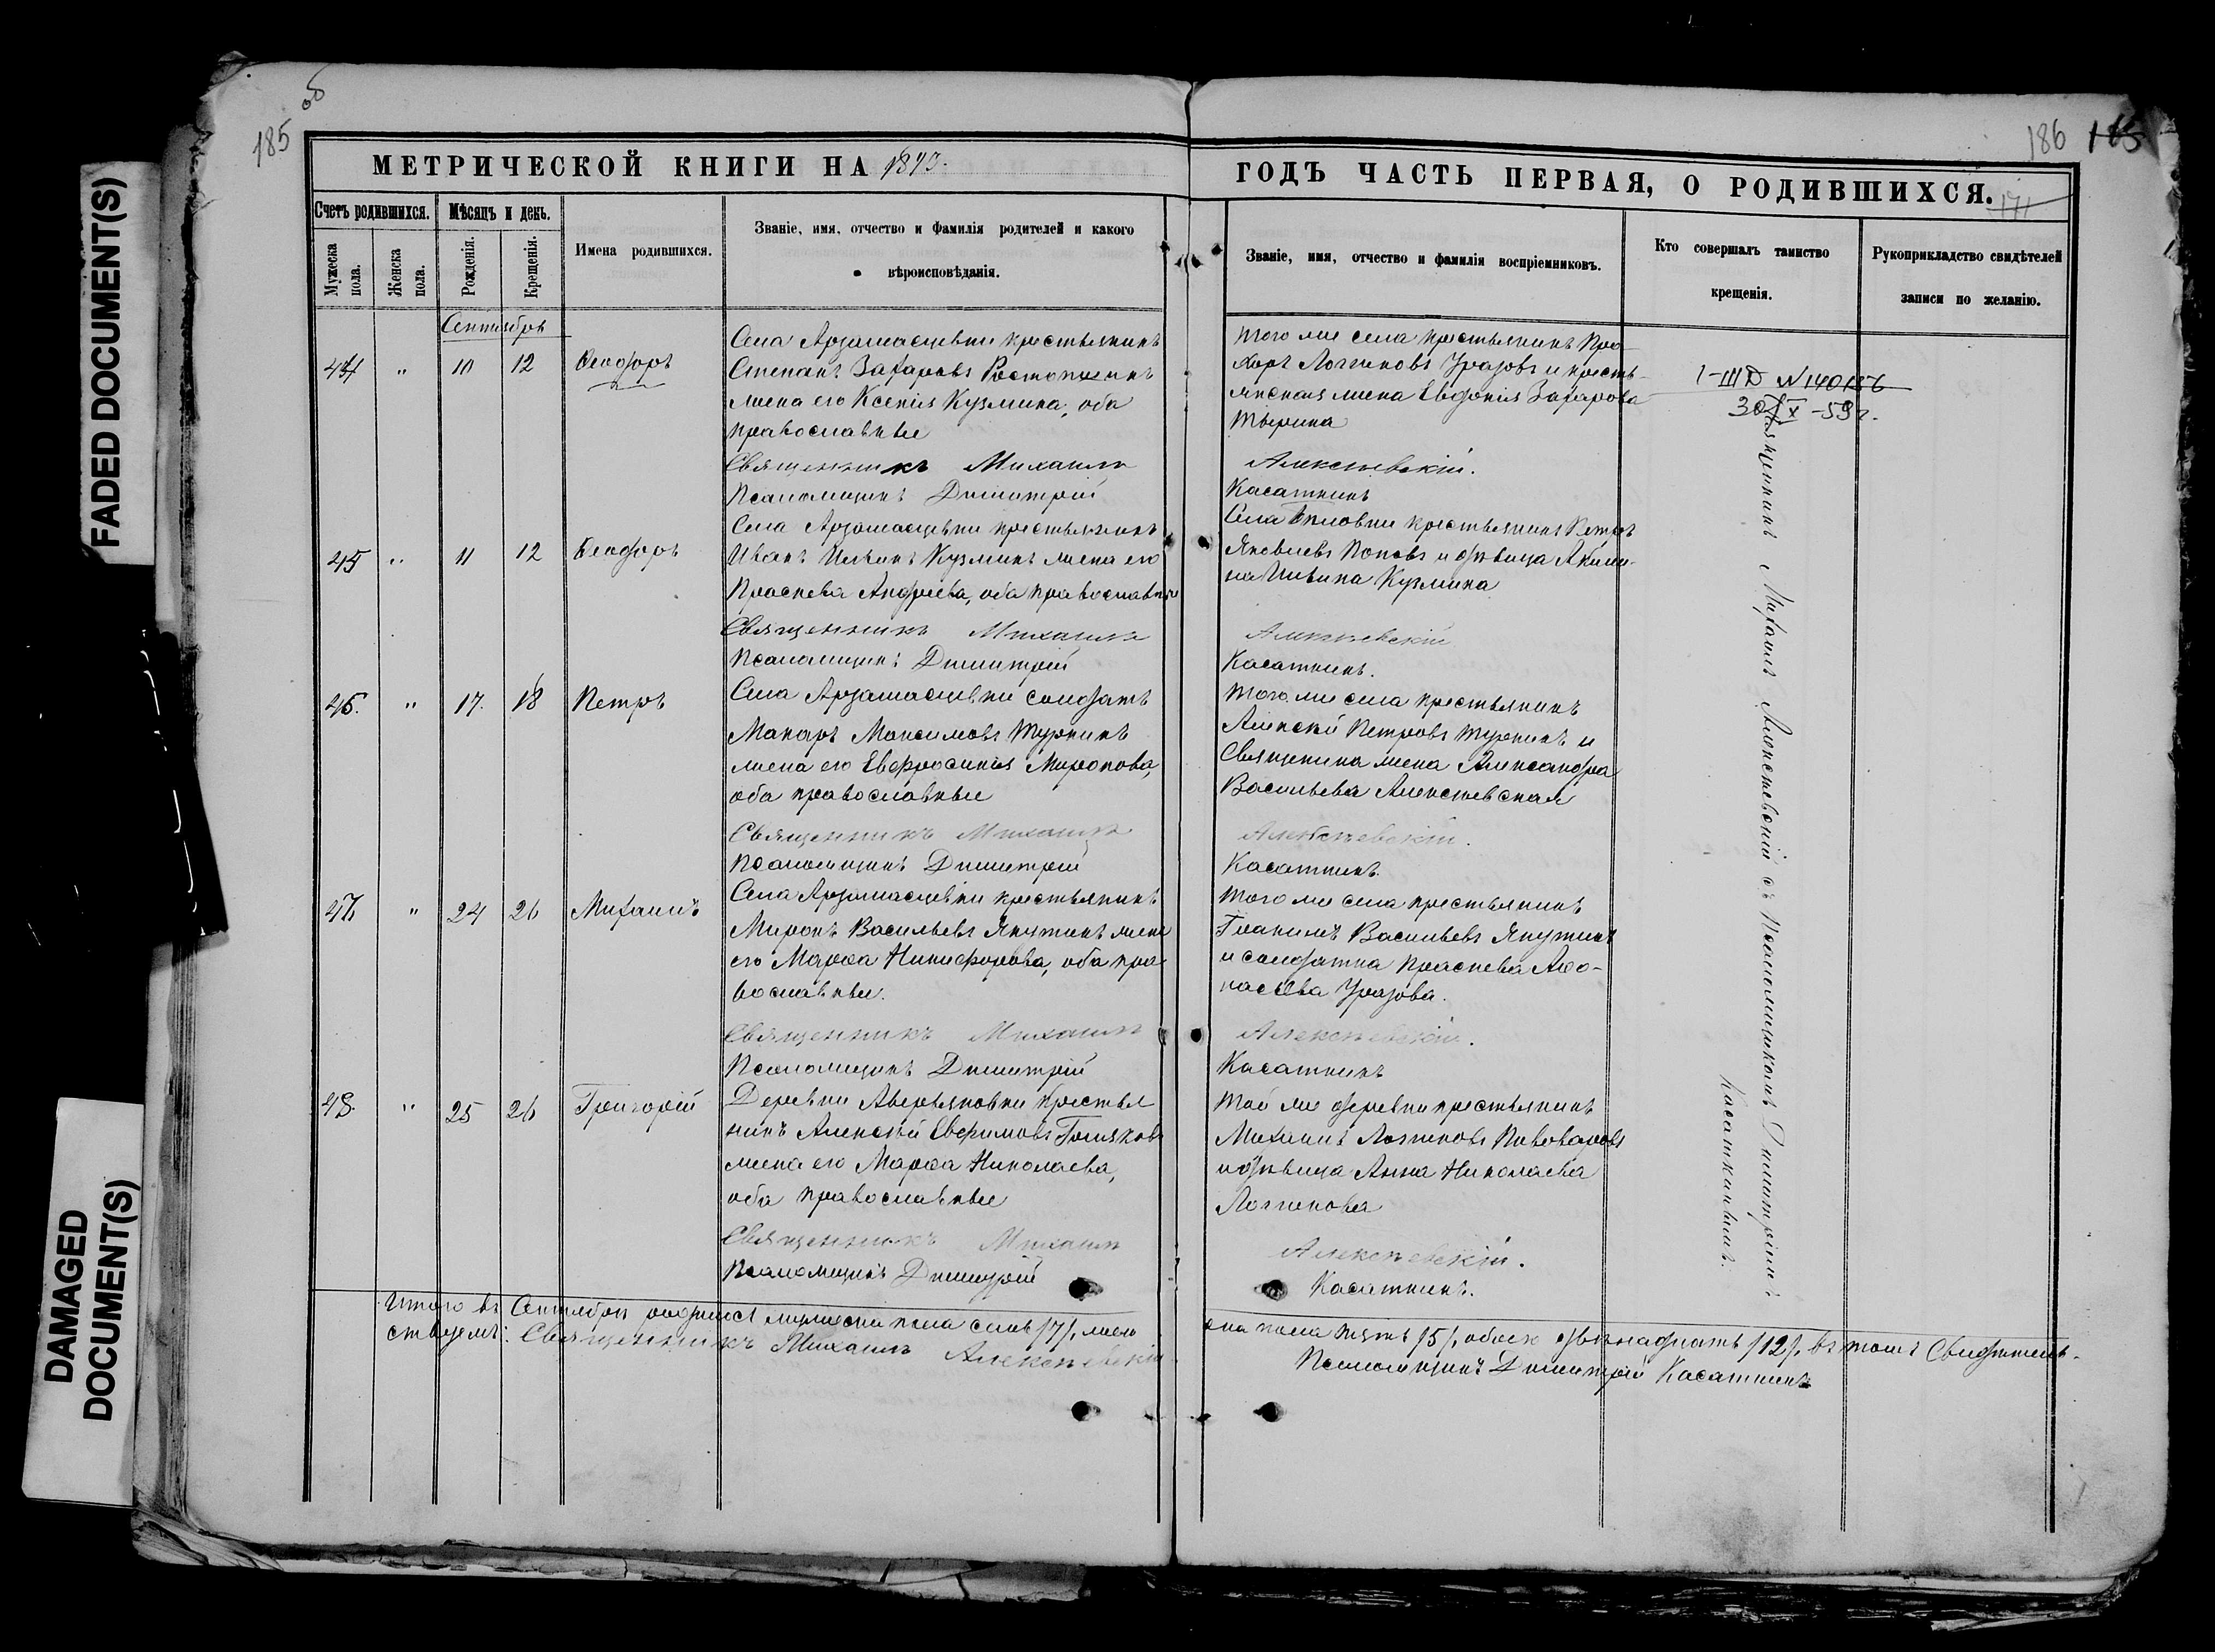 FADED DOCUMENT(S)
DAMAGED
DOCUMENT(S)
185
об
186
МЕТРИЧЕСКОЙ КНИГИ НА
ГОДЪ ЧАСТЬ ПЕРВАЯ, О РОДИВШИХСЯ.
171
Счетъ родившихся.
Мужеска пола.
Женска пола.
Мѣсяцъ и день.
Рожденія.
Крещенія.
Имена родившихся.
Званіе, имя, отчество и фамилія родителей и какого
вѣроисповѣданія.
Званіе, имя, отчество и фамилія воспріемниковъ.
Кто совершалъ таинство
крещенія.
Рукоприкладство свидѣтелей
записи по желанію.
Сентябрь
44 " 10 12 Ѳеодоръ
Села Арзамасцевки крестьянинъ
Степанъ Захаровъ Растопшинъ
жена его Ксенія Кузмина, оба
православные
Того же села крестьянинъ Про-
хоръ Логиновъ Уразовъ и кресть-
янская жена Евдокія Захарова
Тырина
Священникъ Михаилъ Алексѣевскій.
Псаломщикъ Димитрій Касаткинъ
45 " 11 12 Ѳеодоръ
Села Арзамасцевки крестьянинъ
Иванъ Ильинъ Кузминъ жена его
Праскева Андреева, оба православные
Села крестьянинъ Петръ
Яковлевъ Поповъ и дѣвица Акили-
на Ильина Кузмина
Священникъ Михаилъ Алексѣевскій
Псаломщикъ Димитрій Касаткинъ.
46. " 17. 18 Петръ
Села Арзамасцевки солдатъ
Макаръ Максимовъ Туркинъ
жена его Евфросинія Миронова,
оба православные
Того же села крестьянинъ
Алексѣй Петровъ Туркинъ и
Священника жена Александра
Васильева Алексѣевская
Священникъ Михаилъ Алексѣевскій.
Псаломщикъ Димитрій Касаткинъ.
47. " 24 26 Михаилъ
Села Арзамасцевки крестьянинъ
Миронъ Васильевъ Якутинъ жена
его Марѳа Никифорова, оба пра-
вославные.
Того же села крестьянинъ
Галанинъ Васильевъ Якутинъ
и солдатка Праскева Аѳо-
насьева Уразова.
Священникъ Михаилъ Алексѣевскій.
Псаломщикъ Димитрій Касаткинъ
48. " 25 26 Григорій
Деревни Аверьяновки крестья
нинъ Алексѣй Евфимовъ Голяковъ
жена его Марѳа Николаева,
оба православные
Той же деревни крестьянинъ
Михаилъ Логиновъ Пивоваровъ
и дѣвица Анна Николаева
Логинова
Священникъ Михаилъ Алексѣевскій.
Псаломщикъ Димитрій Касаткинъ.
30/IX-59 г.
Священникъ Михаилъ Алексѣевскій съ Псаломщикомъ Димитріемъ
Касаткинымъ.
Итого въ Сентябрѣ родилось мужеска пола семь /7/, жен
ска пола пять /5/, обоихъ двѣнадцать /12/, въ томъ Свидѣтель-
ствуемъ: Священникъ Михаилъ Алексѣевскій
Псаломщикъ Димитрій Касаткинъ